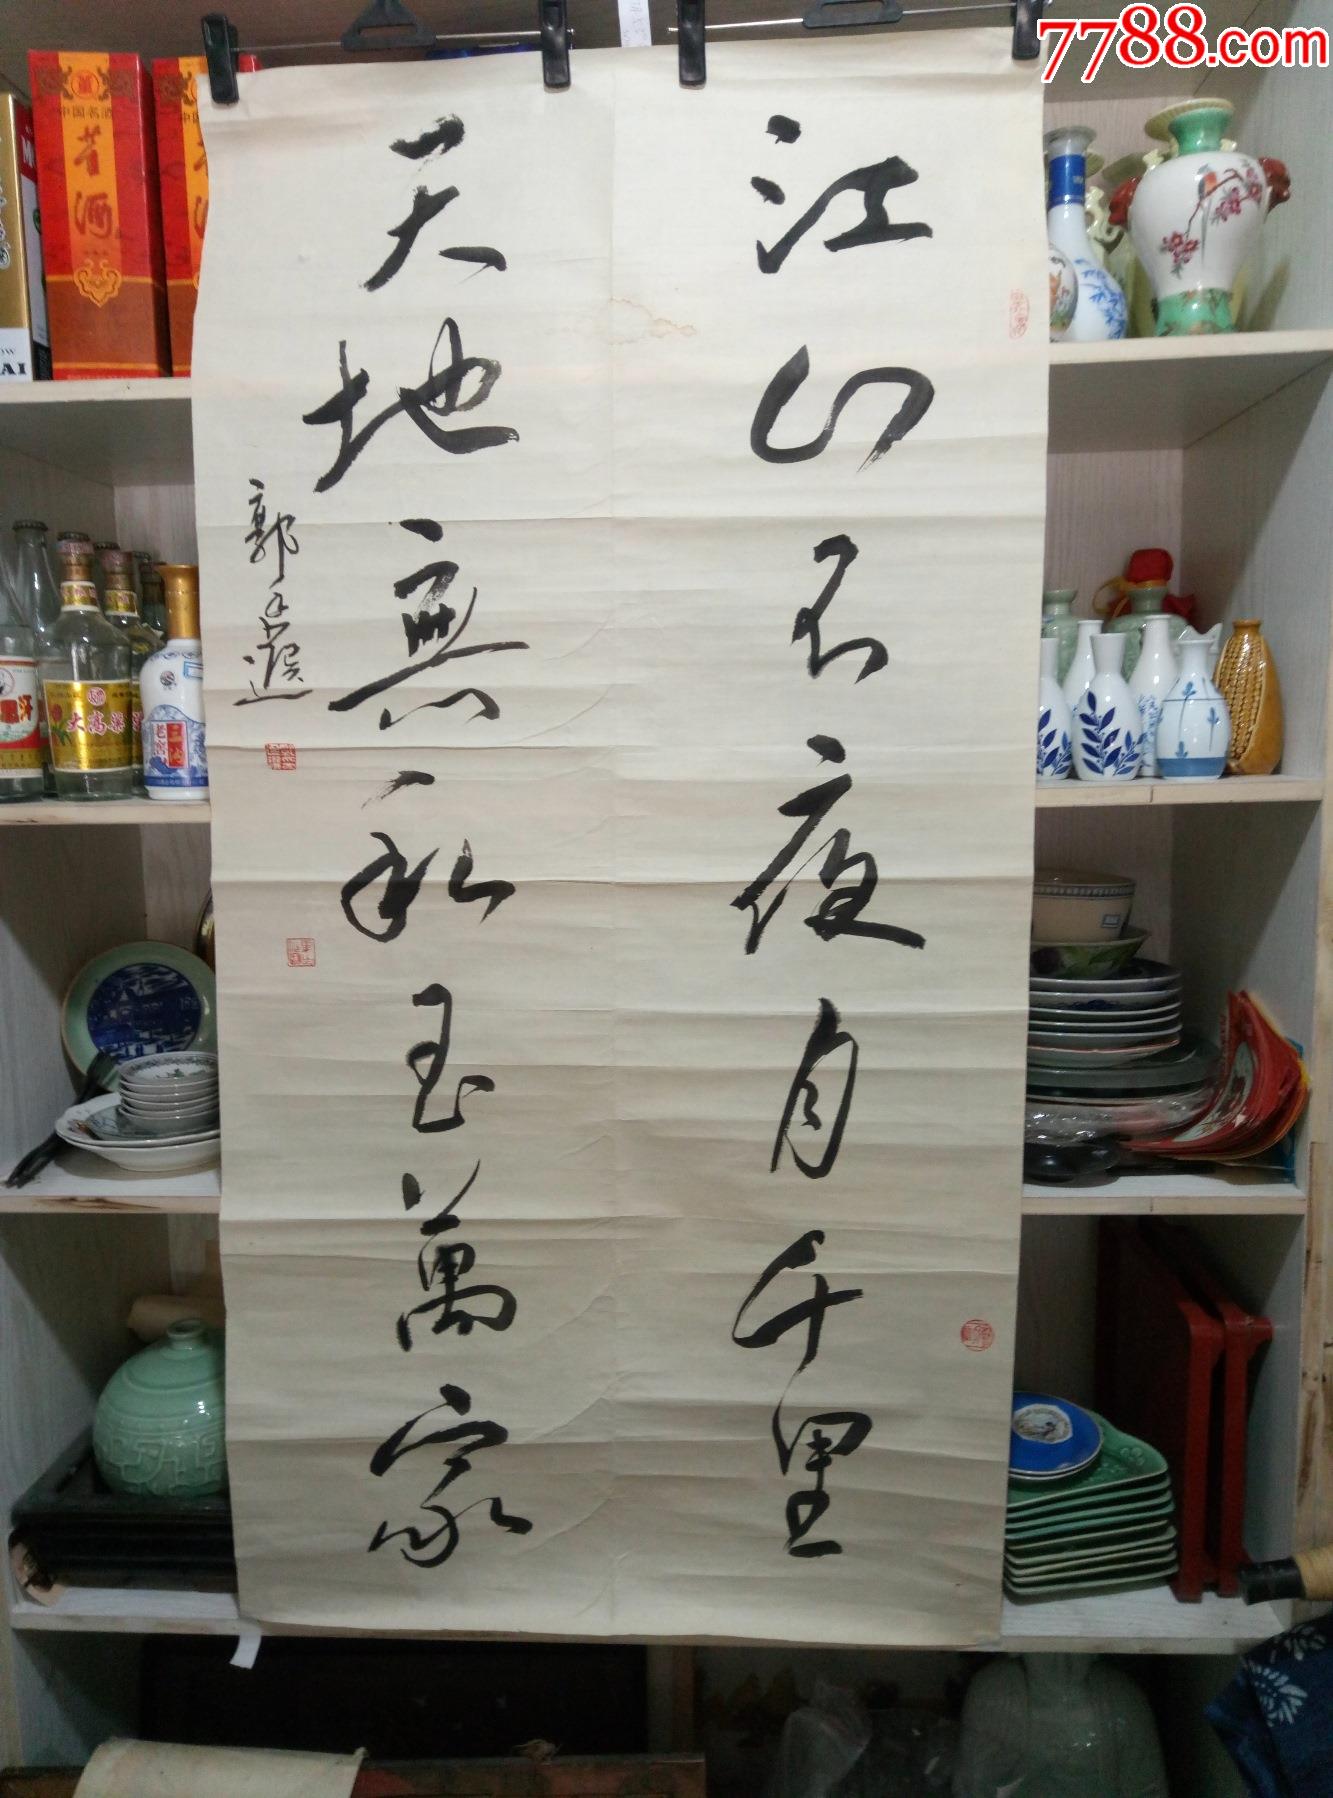 7788.com
江山不夜月千里
天地無私玉萬家
郭
中国名酒
董酒
大高粱
老窖